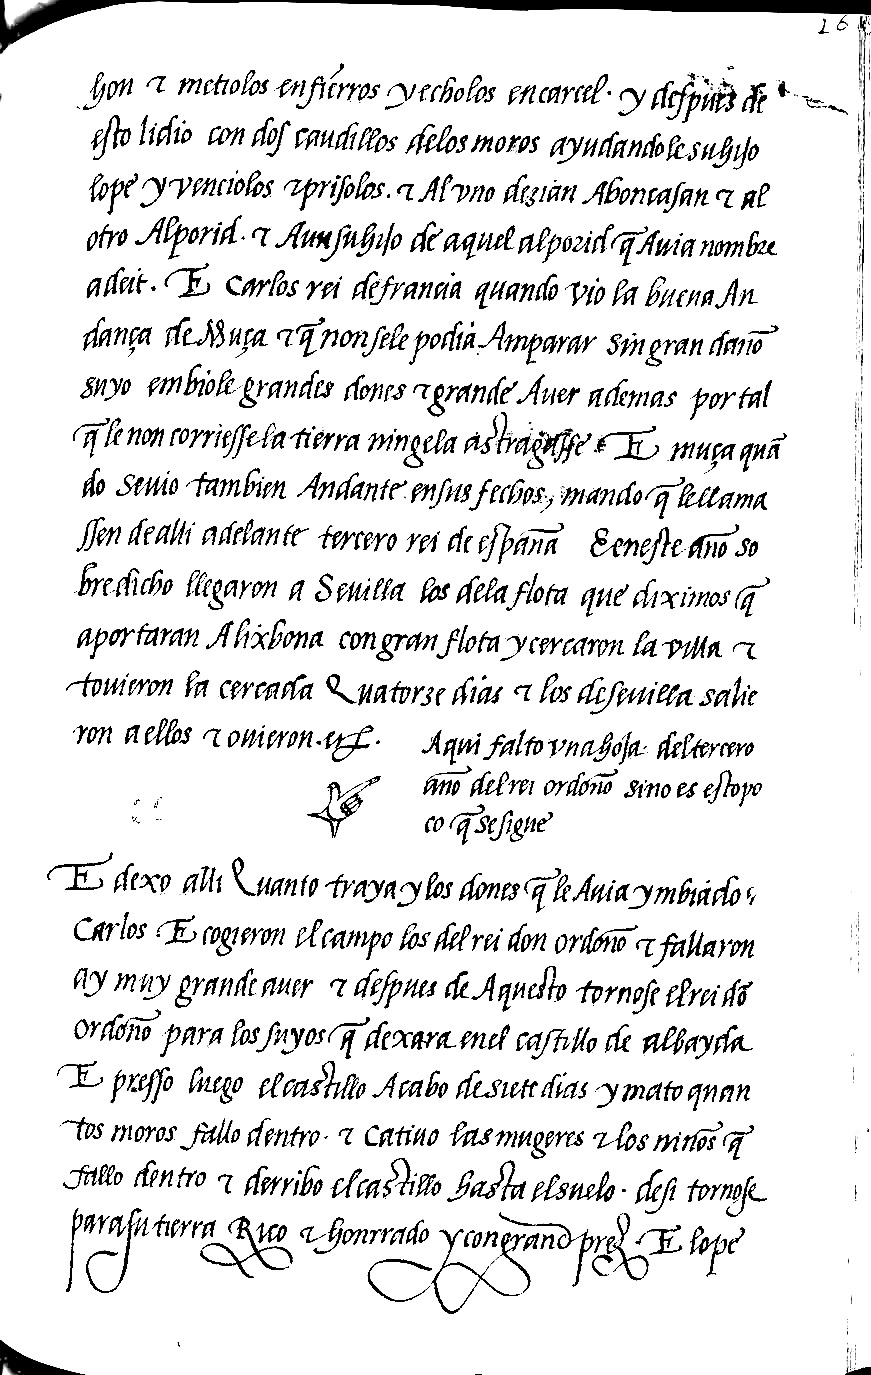 26
hon τ metiolos enfierros y echolos encarcel. y despues de
esto lidio con dos caudillos delos moros ayudandole su hijo
lope y venciolos τ prisolos. τ Al vno dezian Abonçasan τ al
otro Alporid. τ Aun su hijo de aquel alporid q̃ Auia nombre
adeit. E Carlos rei defrancia quando vio la buena An
dança de Muça τ q̃ non sele podia Amparar sin gran daño
suyo embiole grandes dones τ grande Auer ademas por tal
q̃ le non corriesse la tierra nin gela astragasse. E muça quã
do se uio tambien Andante en sus fechos, mando q̃ le llama
ssen de alli adelante tercero rei de españa E eneste año so
bredicho llegaron a Seuilla los dela flota que diximos q̃
aportaran A lixbona con gran flota y cercaron la villa τ
touieron la cercada Quatorze dias τ los de seuilla salie
ron a ellos τ ouieron.
Aqui falto vna hoja del tercero
año del rei ordoño sino es esto po
co q̃ se sigue
E dexo alli Quanto traya y los dones q̃ le Auia ymbiado
Carlos. E cogieron el campo los del rei don ordoño τ fallaron
ay muy grande auer τ despues de Aquesto tornose el rei dõ
ordoño para los suyos q̃ dexara enel castillo de albayda
E presso luego el castillo Acabo de siete dias y mato quan
tos moros fallo dentro. τ catiuo las mugeres τ los niños q̃
fallo dentro τ derribo el castillo hasta el suelo. desi tornose
para su tierra Rico τ honrrado y con grand prez. E lope